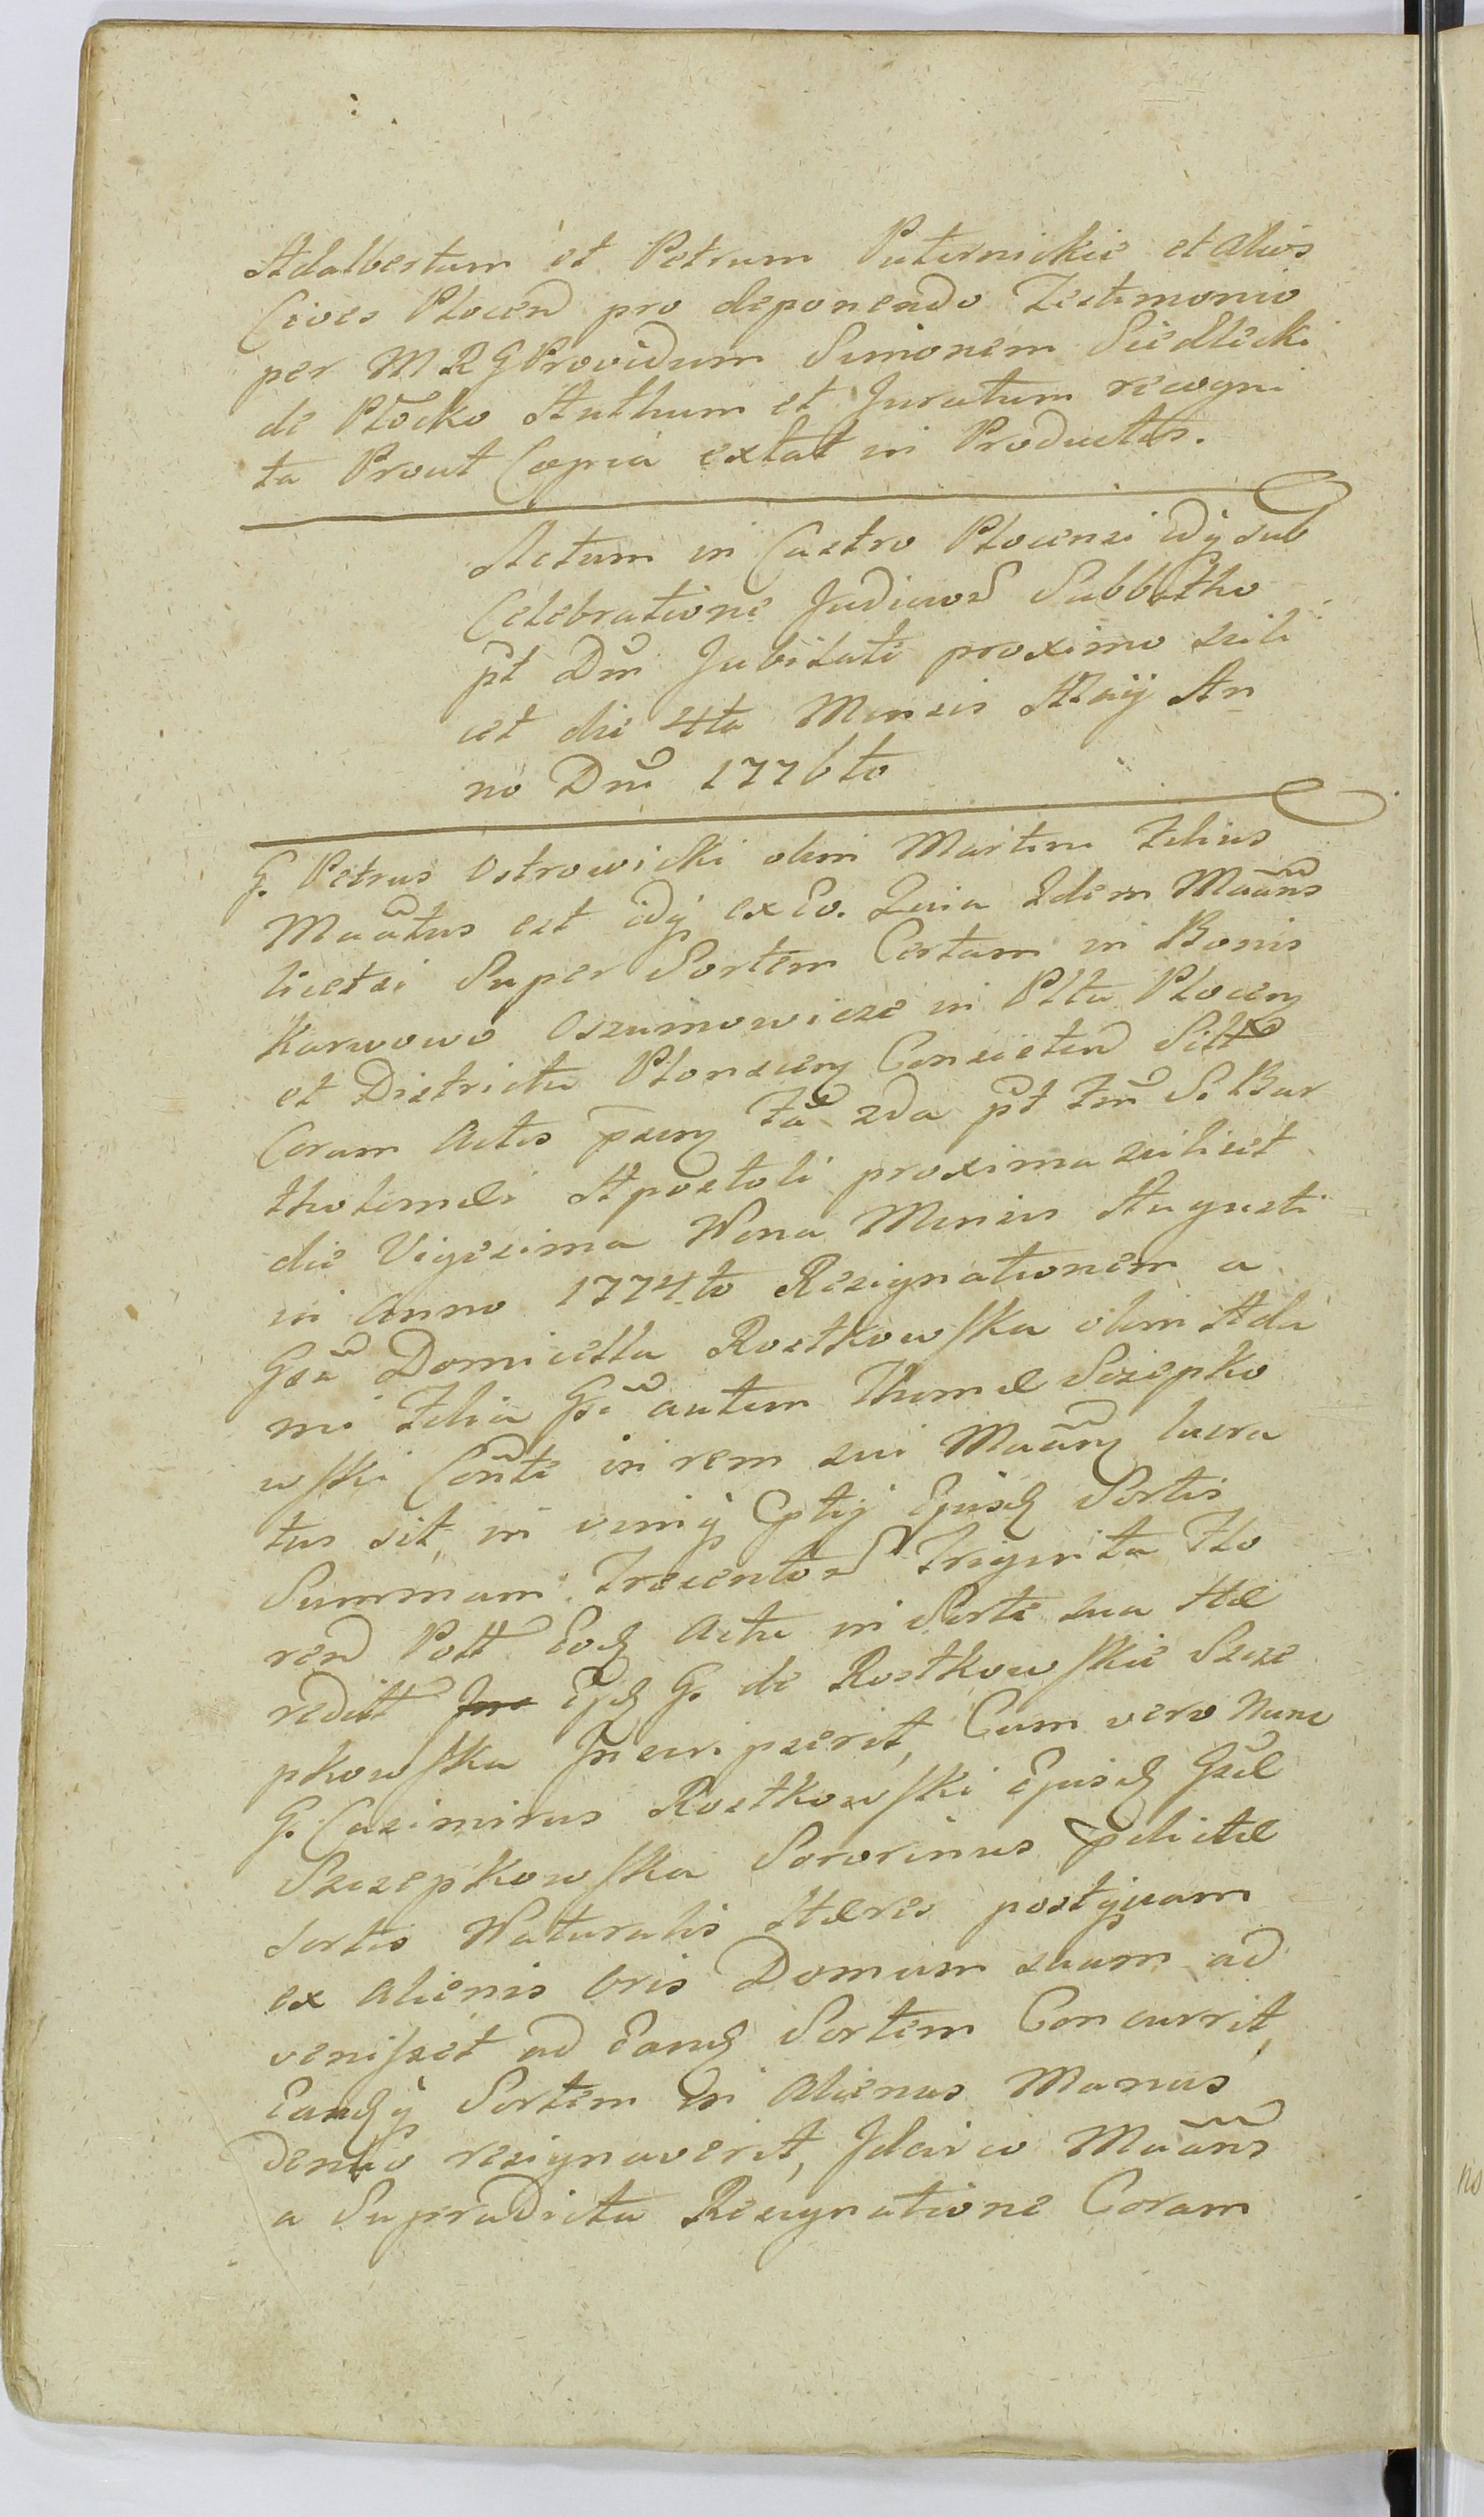 Adalbertum et Petrum Paternickie et alios
Cives Plocen pro deponendo Testimonio
per M R G Providum Simonem Siedlecki
de Płocko Authum et Juratum recogni
ta Prout Copia extat in Productis.
Actum in Castro Plocensi idq sub
Celebratione Judicior Sabbatho
pt Dm Jubilate proximo scili
cet die 4ta Mensis Maÿ An
no Dni 1776to
G. Petrus Ostrowicki olim Martini Filius
Maãtus est idq ex Eo. Quia Idem Maãns
licet si Super Sortem Certam in Bonis
Karwowo Oszumowicze in Pltu Plocen
et Districtu Plonscen Consisten
Coram Actis pscen Fa 2da pt Fm S. Bar
tholomæi Apostoli proxima scilicet
die Vigesima Nona Mensis Augusti
in Anno 1774to Resignationem a
Gsa Domicella Rostkowska olim Ada
mi Filia Gsi autem Thomæ Sczepko
wski Conte in rem sui Maãn lucra
tus sit, in vimq Ejusd Sortis
Summam Trecentor Triginta Flo
ren Poll Eod Actu in Sorte sua Hæ
redit Ejd G. de Rostkowskie Szcze
pkowska Inscripserit, Cum vero Nunc
G. Casimirus Rostkowski Ejusd Gsæ
Szczepkowska Sororinus pdictæ
Sortis Naturalis Hæres postquam
ex alienis Oris Domum suam ad
venisset ad Eand Sortem Concurrit,
Eandq Sortem in Alienas Manus
Denuo resignaverit, Idcirco Maãns
a Supradicta Resignatione Coram